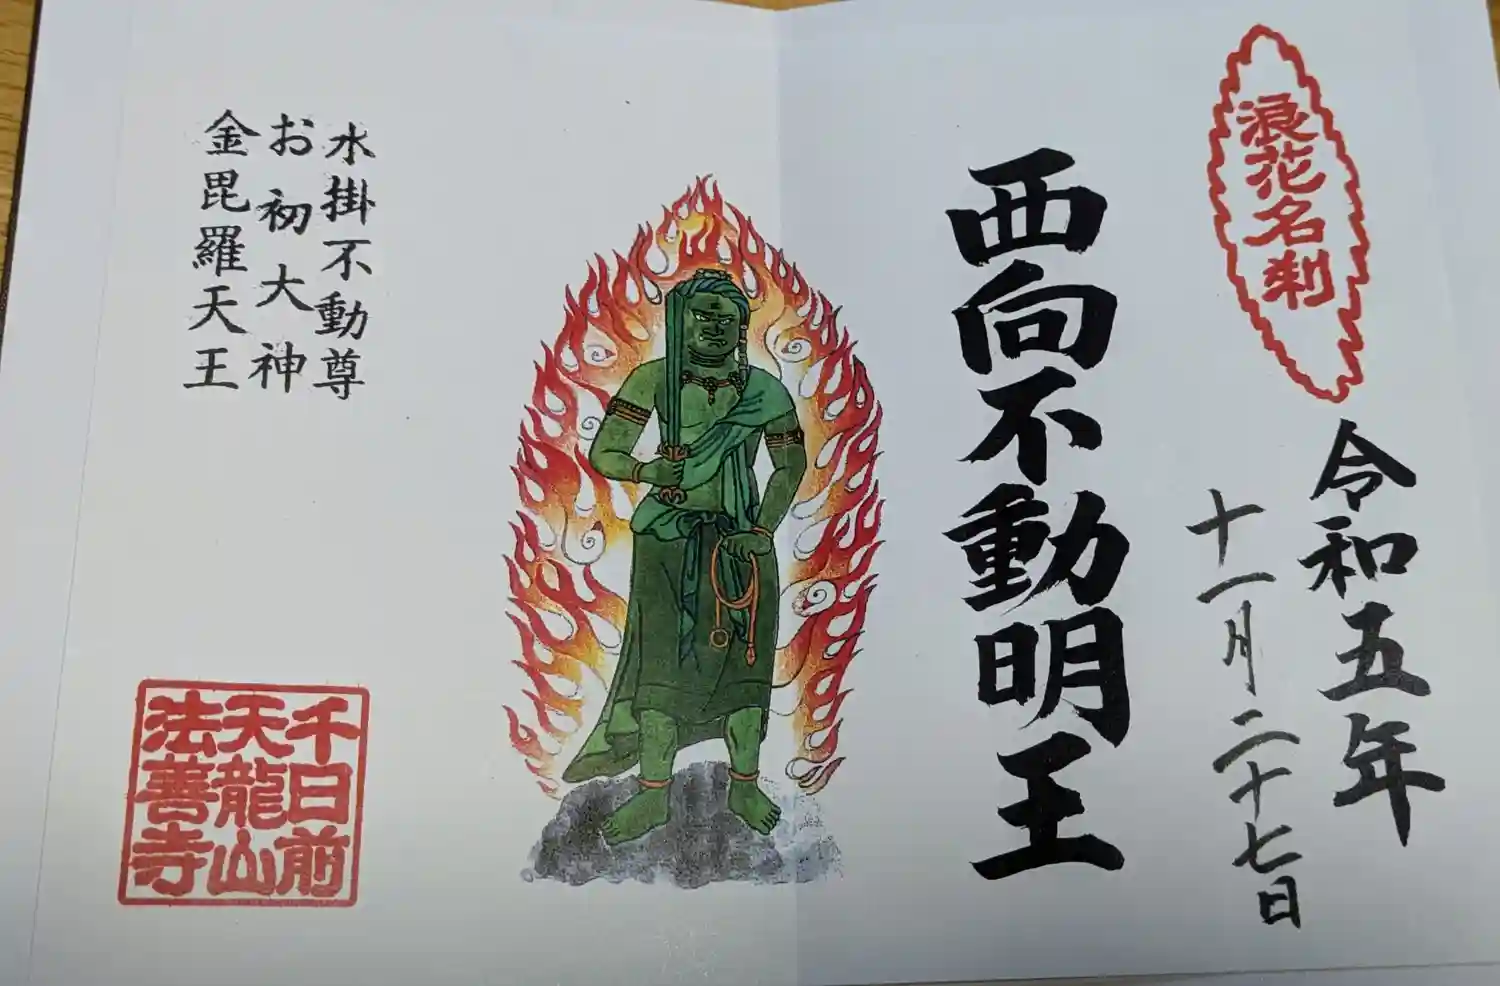 浪花名刹
令和五年
十一月二十七日
西向不動明王
水掛不動尊
お初大神
金毘羅天王
千日前
天龍山
法善寺